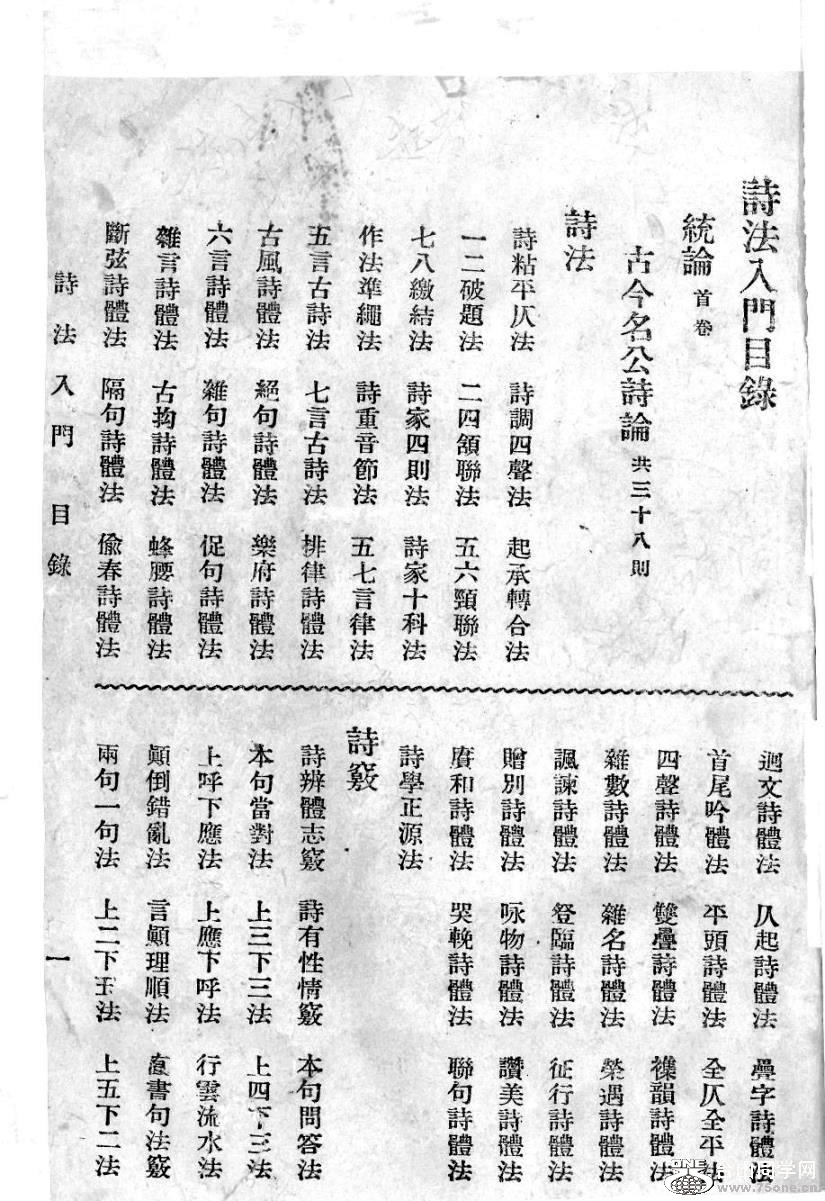 詩法入門目錄
統論 首卷
古今名公詩論 共三十八則
詩法
詩粘平仄法 詩調四聲法 起承轉合法
一二破題法 二四頷聯法 五六頸聯法
七八繳結法 詩家四則法 詩家十科法
作法準繩法 詩重音節法 五七言律法
五言古詩法 七言古詩法 排律詩體法
古風詩體法 絕句詩體法 樂府詩體法
六言詩體法 雜句詩體法 促句詩體法
雜言詩體法 古拘詩體法 蜂腰詩體法
斷弦詩體法 隔句詩體法 偷春詩體法
詩法入門目錄
迴文詩體法 仄起詩體法 疊字詩體法
首尾吟體法 平頭詩體法 全仄全平法
四聲詩體法 雙疊詩體法 襍韻詩體法
雜數詩體法 雜名詩體法 榮遇詩體法
諷諫詩體法 登臨詩體法 征行詩體法
贈別詩體法 咏物詩體法 讚美詩體法
賡和詩體法 哭輓詩體法 聯句詩體法
詩學正源法
詩竅
詩辨體志竅 詩有性情竅 本句問答法
本句當對法 上三下三法 上四下三法
上呼下應法 上應下呼法 行雲流水法
顛倒錯亂法 言顛理順法 直書句法竅
兩句一句法 上二下五法 上五下二法
一
ONE
www.75one.cn